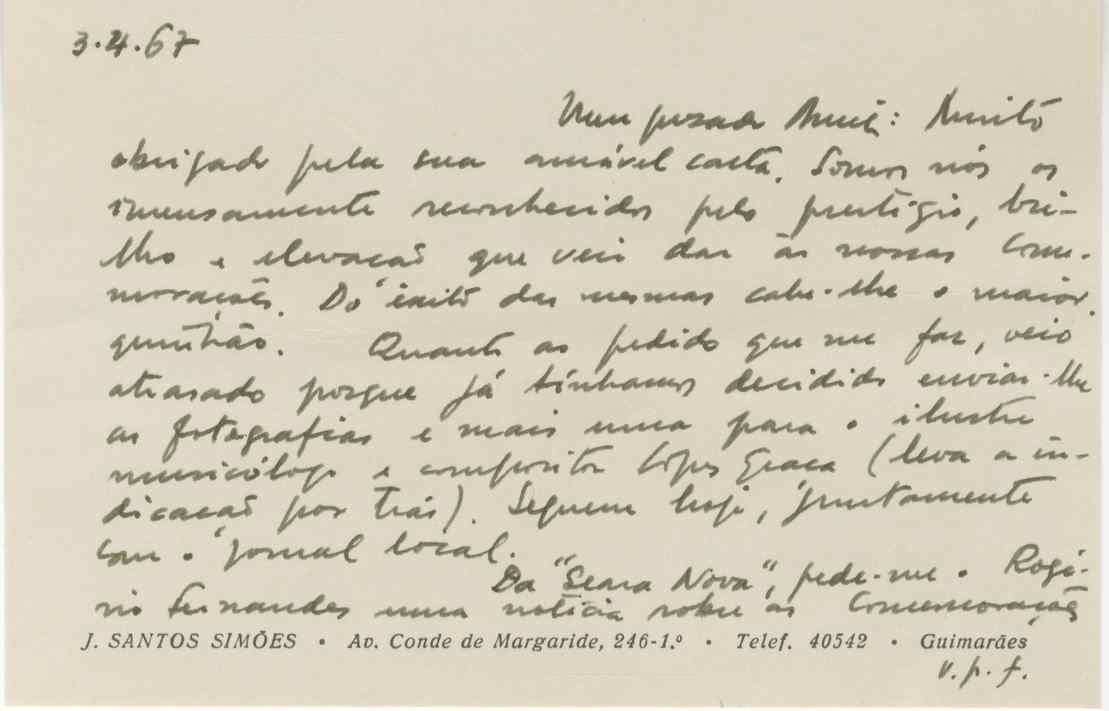 3.4.67
Meu prezado Amigo: Muito
obrigado pela sua amável carta. Somos nós os
imensamente reconhecidos pelo prestígio, bri-
lho e elevação que veio dar às nossas Come-
morações. Do êxito das mesmas cabe-lhe o maior
quinhão. Quanto ao pedido que me faz, veio
atrasado porque já tínhamos decidido enviar-lhe
as fotografias e mais uma para o ilustre
musicólogo e compositor Lopes Graça (leva a in-
dicação por trás). Seguem hoje, juntamente
com o jornal local.
Da "Seara Nova", pede-me o Rogé-
rio Fernandes uma notícia sobre as Comemorações
J. SANTOS SIMÕES • Av. Conde de Margaride, 246-1.º • Telef. 40542 • Guimarães
v.p.f.